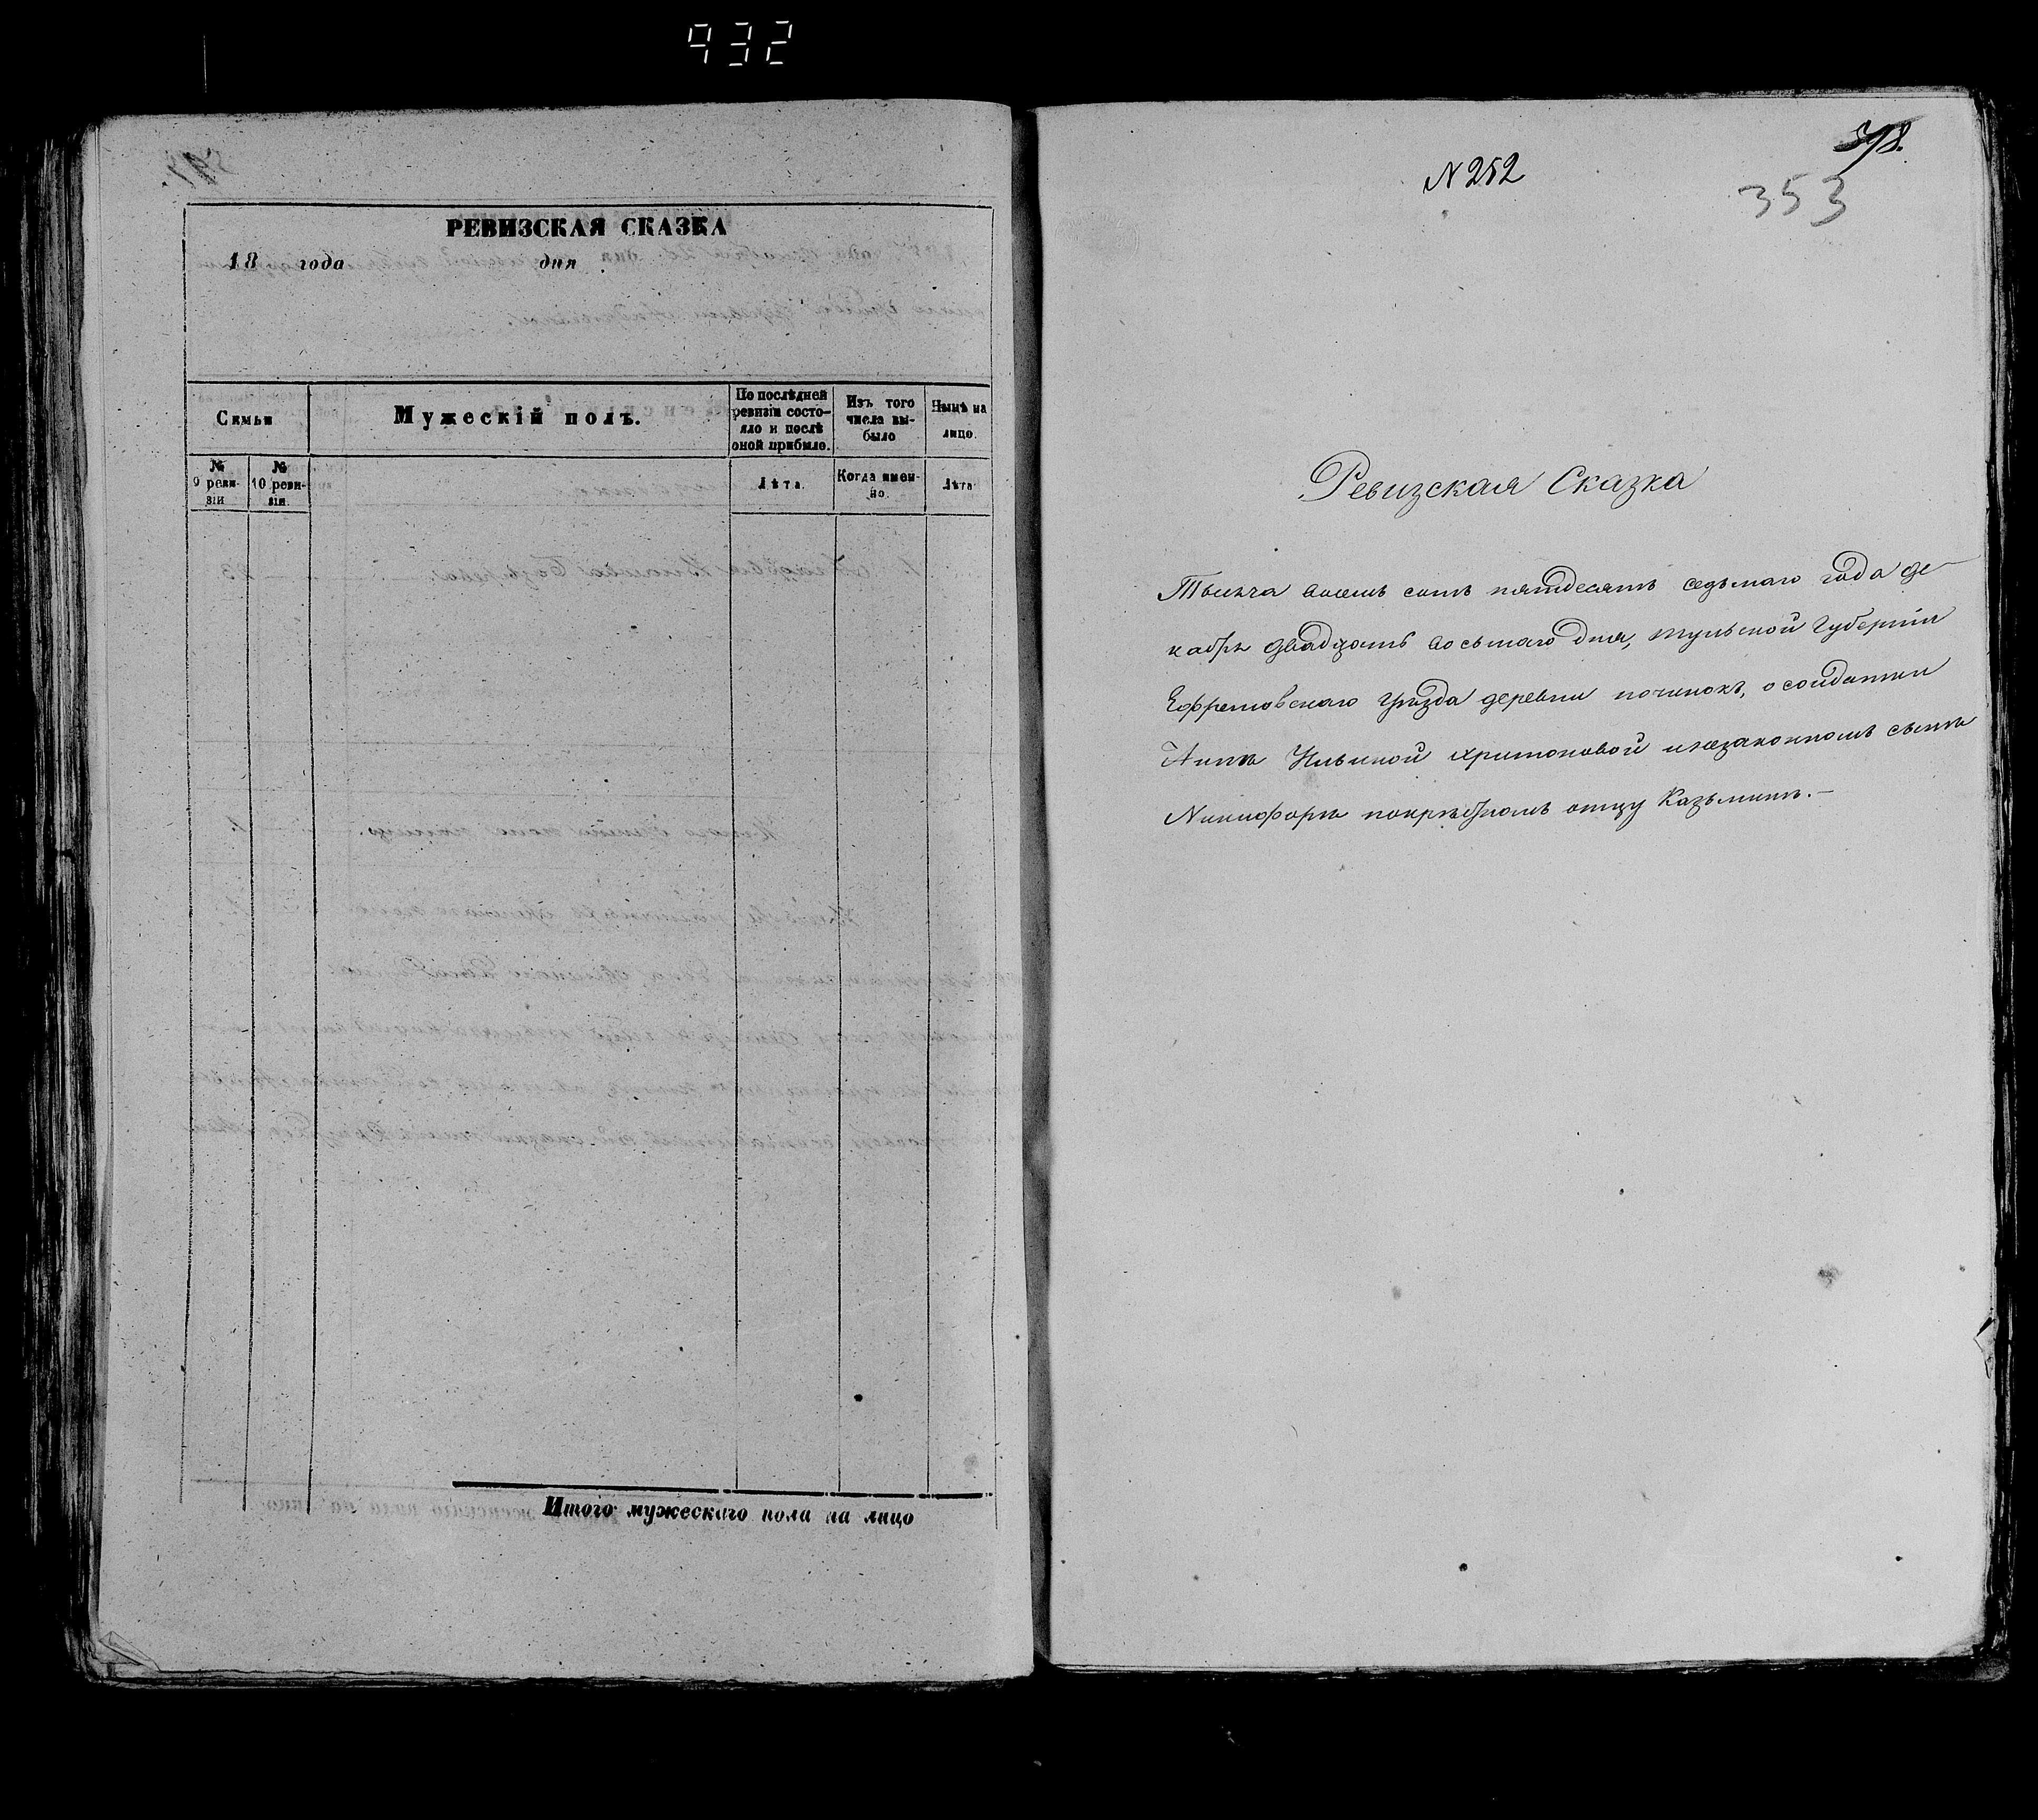 932
РЕВИЗСКАЯ СКАЗКА
18 года дня
Семьи
Мужескій полъ.
По послѣдней ревизіи состояло и послѣ оной прибыло.
Изъ того числа выбыло
Нынѣ на лицо.
№ 9 ревизіи.
№ 10 ревизіи.
Лѣта.
Когда именно.
Лѣта
Итого мужескаго пола на лицо
N 252
398.
353
Ревизская Сказка
Тысяча восемь сотъ пятдесятъ седьмаго года де-
кабря двадцать восьмаго дня, тульской губерніи
Ефремовскаго уѣзда деревни починокъ, о солдатки
Аннѣ Ильиной Харитоновой и незаконномъ сынѣ
Никифорѣ покрѣсномъ отцу Казьминъ.—